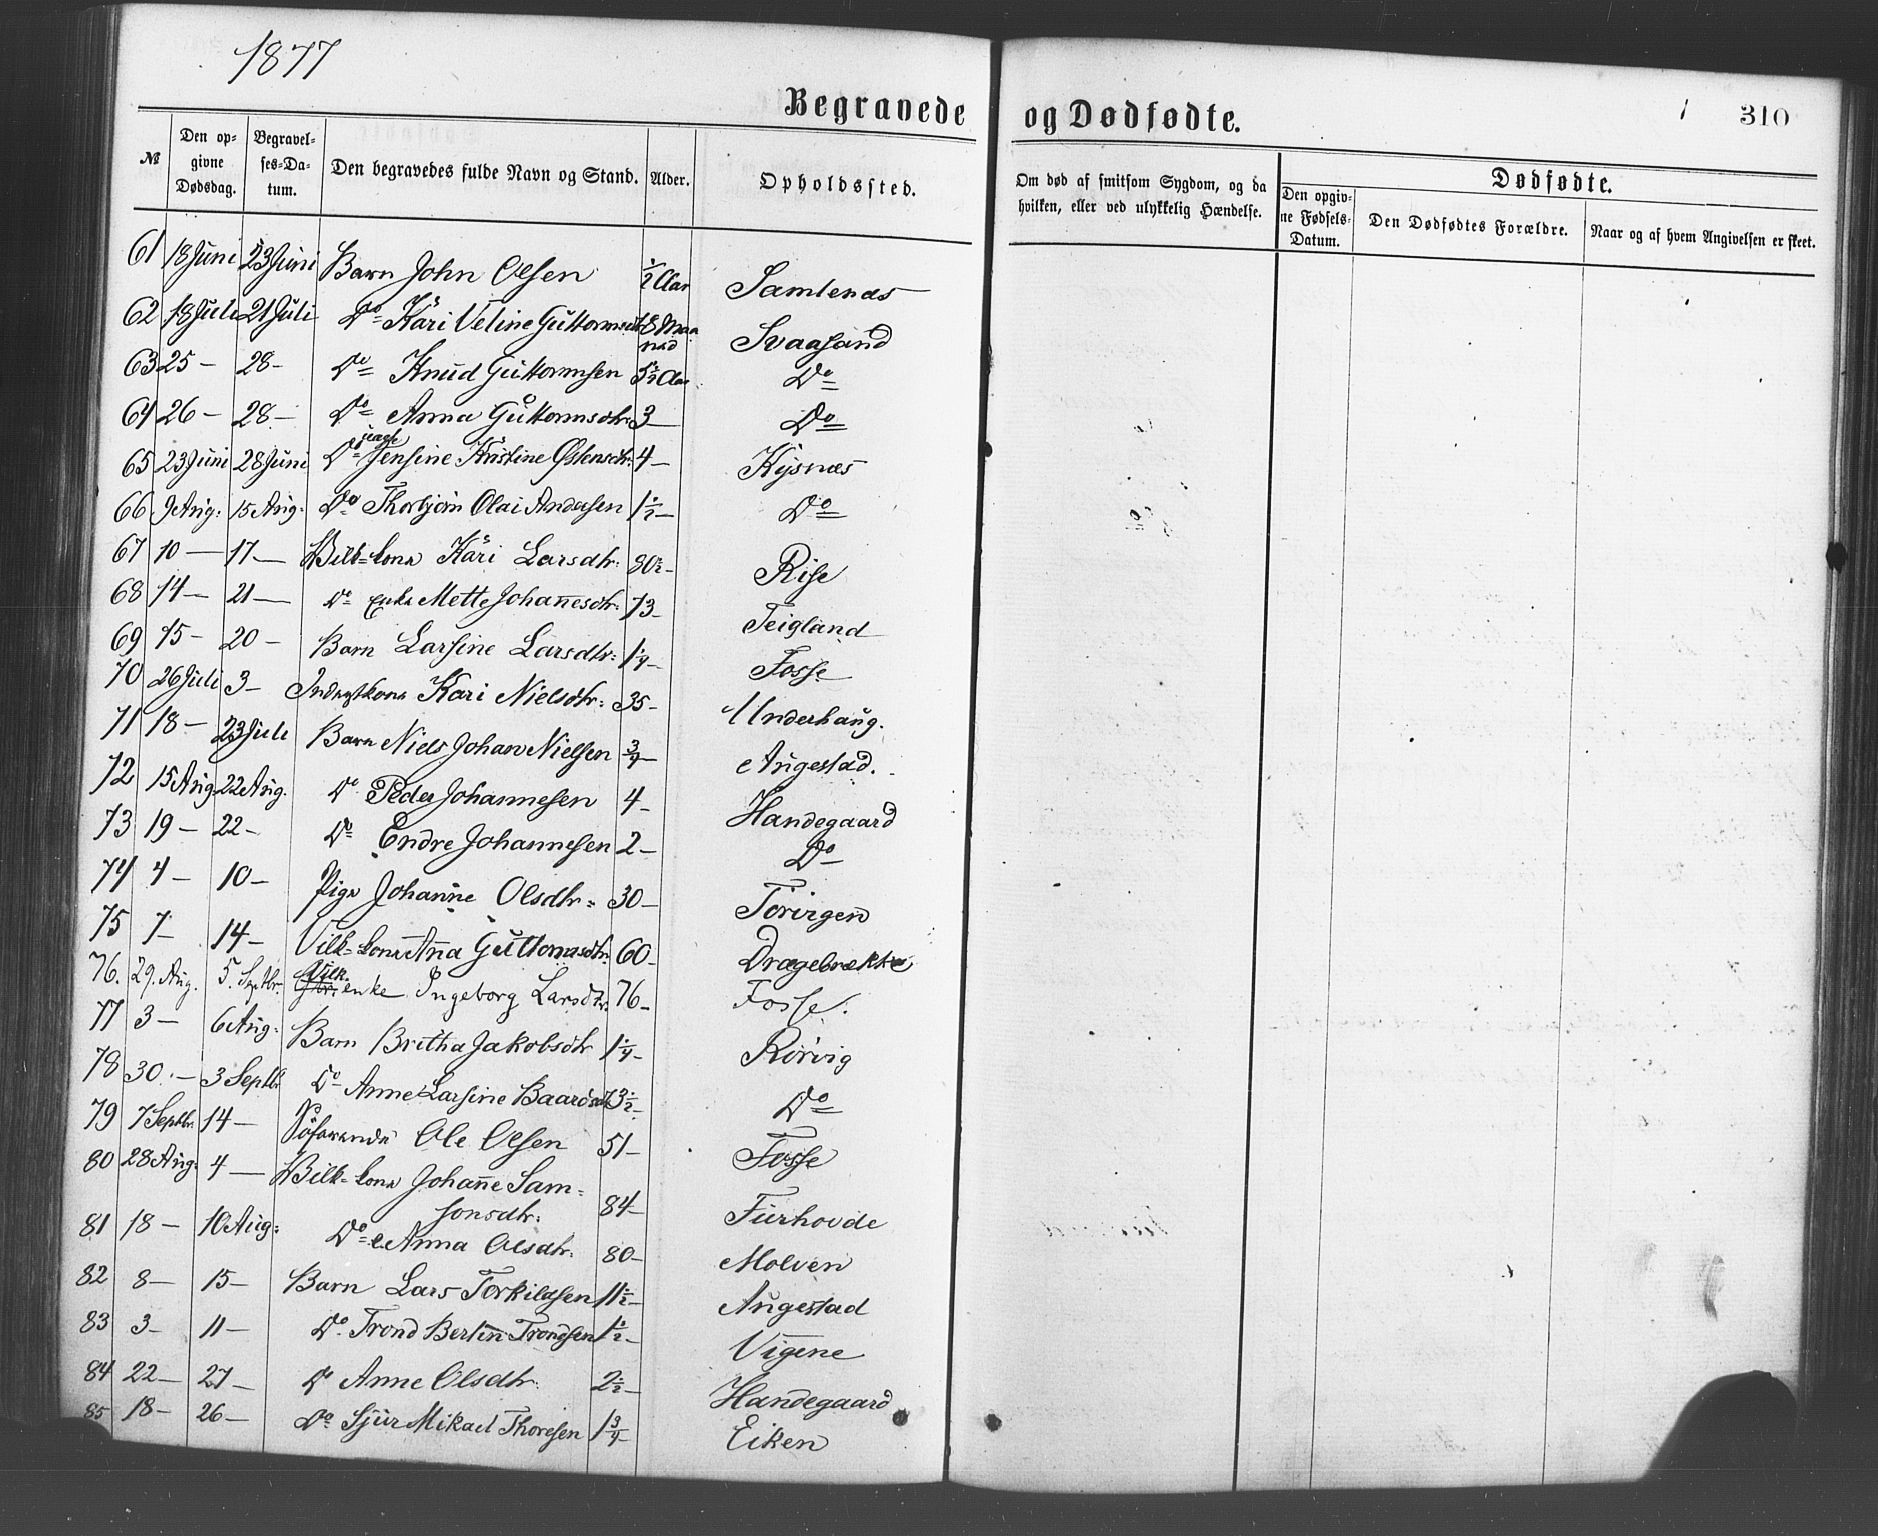 1877
Begravede og Dødfødte.
310
№
Den opgivne Dødsdag.
Begravelses-Datum.
Den begravedes fulde Navn og Stand.
Alder.
Opholdssted.
Om død af smitsom Sygdom, og da hvilken, eller ved ulykkelig Hændelse.
Dødfødte.
Den opgivne Fødsels-Datum.
Den Dødfødtes Forældre.
Naar og af hvem Angivelsen er skeet.
61 18 Juni 23 Juni Barn John Olsen ½ Aar Samlenas
62 18 Juli 21 Juli Do Kari Veline Guttormsdtr 8 Maanad Svaasand
63 25 — 28 — Do Knud Guttormsen 5½ Aar Do
64 26 — 28 — Do Anna Guttormsdtr 3 — Do
65 23 Juni 28 Juni Do Jensine Kristine Ostensdtr: 4 — Kysnæs
66 9 Aug: 15 Aug: Do Thorbjörn Olai Andersen 1½ — Do
67 10 — 17 — Vilk-kona Kari Larsdtr: 80½ — Rise
68 14 — 21 — Do Enka Mette Johannesdtr: 73 — Teigland
69 15 — 20 — Barn Larsine Larsdtr: 1¼ — Fosse
70 26 Juli 3 — Kari Nielsdtr: 35 — Underhaug.
71 18 — 23 Juli Barn Niels Johan Nielsen ¾ — Augestad.
72 15 Aug: 22 Aug. Do Peder Johannesen 4 — Handegaard
73 19 — 22 — Do Endre Johannesen 2 — Do
74 4 — 10 — Pige Johanne Olsdtr: 30 — Törvigen
75 7 — 14 — Vilk-kona Anna Guttormsdtr. 60 — Drægebrække
76. 29. Aug. 5. Septbr. Vilk. enke Ingeborg Larsdtr. 76 — Fosse.
77 3 — 6 Aug: Barn Britha Jakobsdtr 1¼ — Rörvig
78 30. — 3 Septbr Do Anne Larsine Baardsdtr 3½ — Do
79 7 Septbr. 14 — Söfarende Ole Olsen 51 — Fosse
80 28 Aug: 4 — Vilk-kona Johanne Sam-
sonsdtr: 84 — Furhovde
81 18 — 10 Aug: Do Anna Olsdtr: 80 — Molven
82 8 — 15 — Barn Lars Torkildsen 11½ — Augestad
83 3 — 11 — Do. Trond Bertin Trondsen 1½ — Vigene
84 22 — 27 — Do Anne Olsdtr. 2½ — Handegaard
85 18 — 26 — Do Sjur Mikael Thoresen 1¾ — Eiken